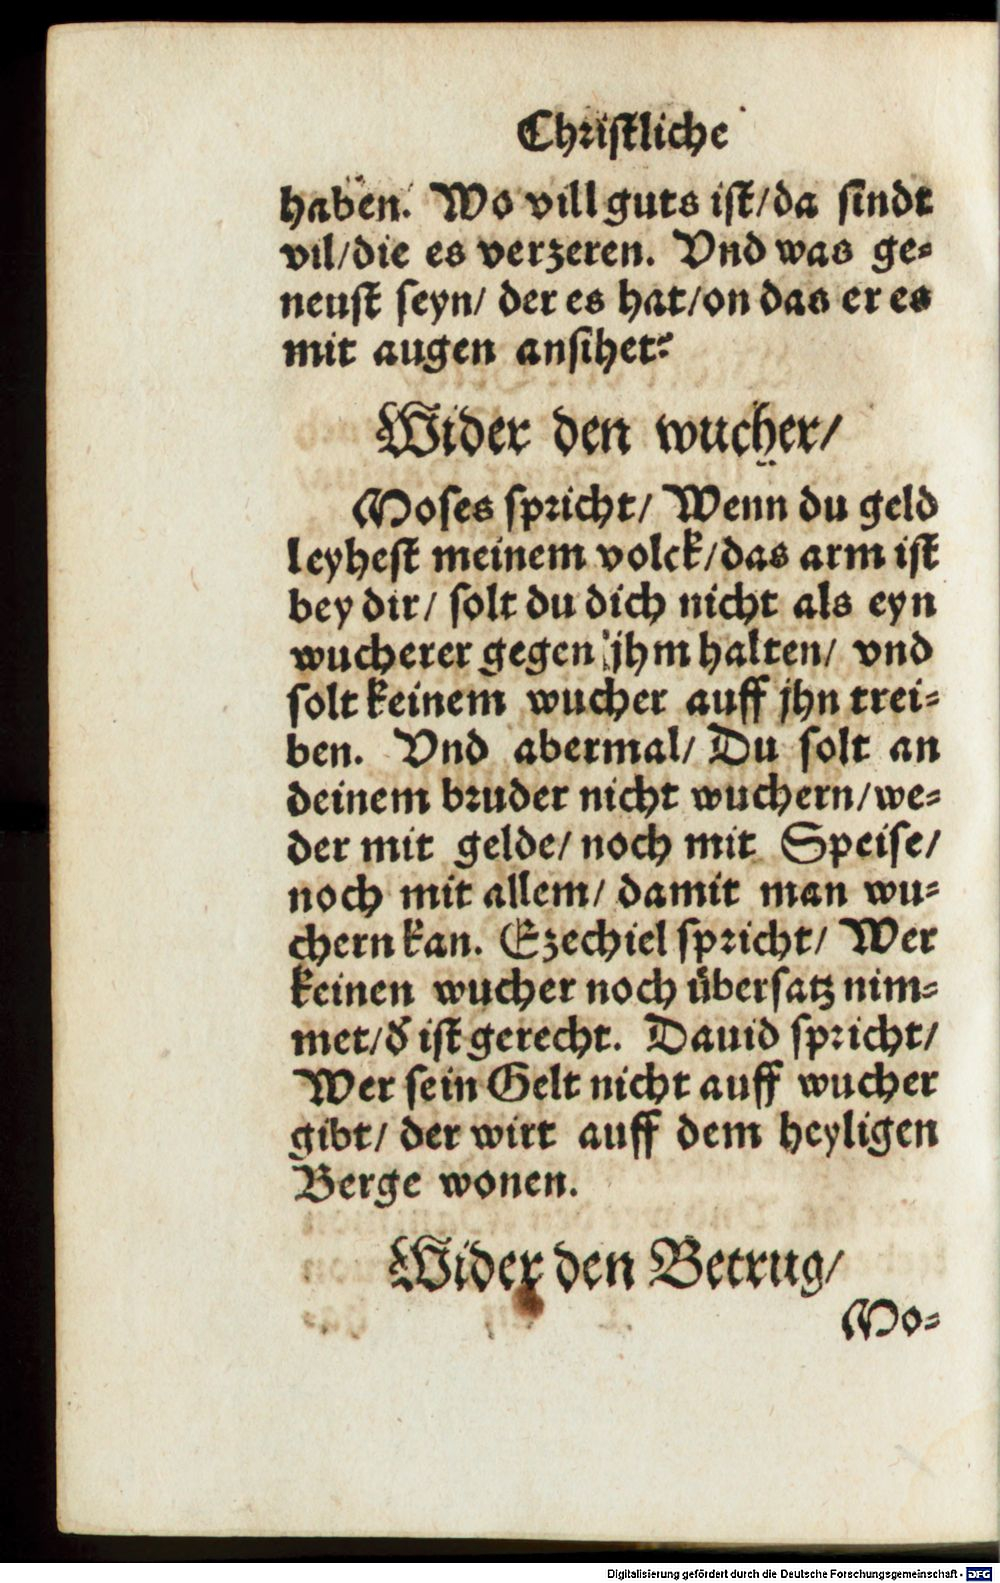 Christliche
haben. Wo vill guts ist/da sindt
vil/die es verzeren. Vnd was ge-
neust seyn/ der es hat/on das er es
mit augen ansihet?
Wider den wucher/
Moses spricht/ Wenn du geld
leyhest meinem volck/das arm ist
bey dir/ solt du dich nicht als eyn
wucherer gegen jhm halten/ vnd
solt keinem wucher auff jhn trei-
ben. Vnd abermal/ Du solt an
deinem bruder nicht wuchern/we-
der mit gelde/ noch mit Speise/
noch mit allem/ damit man wu-
chern kan. Ezechiel spricht/ Wer
keinen wucher noch übersatz nim-
met/ď ist gerecht. Dauid spricht/
Wer sein Gelt nicht auff wucher
gibt/ der wirt auff dem heyligen
Berge wonen.
Wider den Betrug/
Mo-
Digitalisierung gefördert durch die Deutsche Forschungsgemeinschaft - DFG